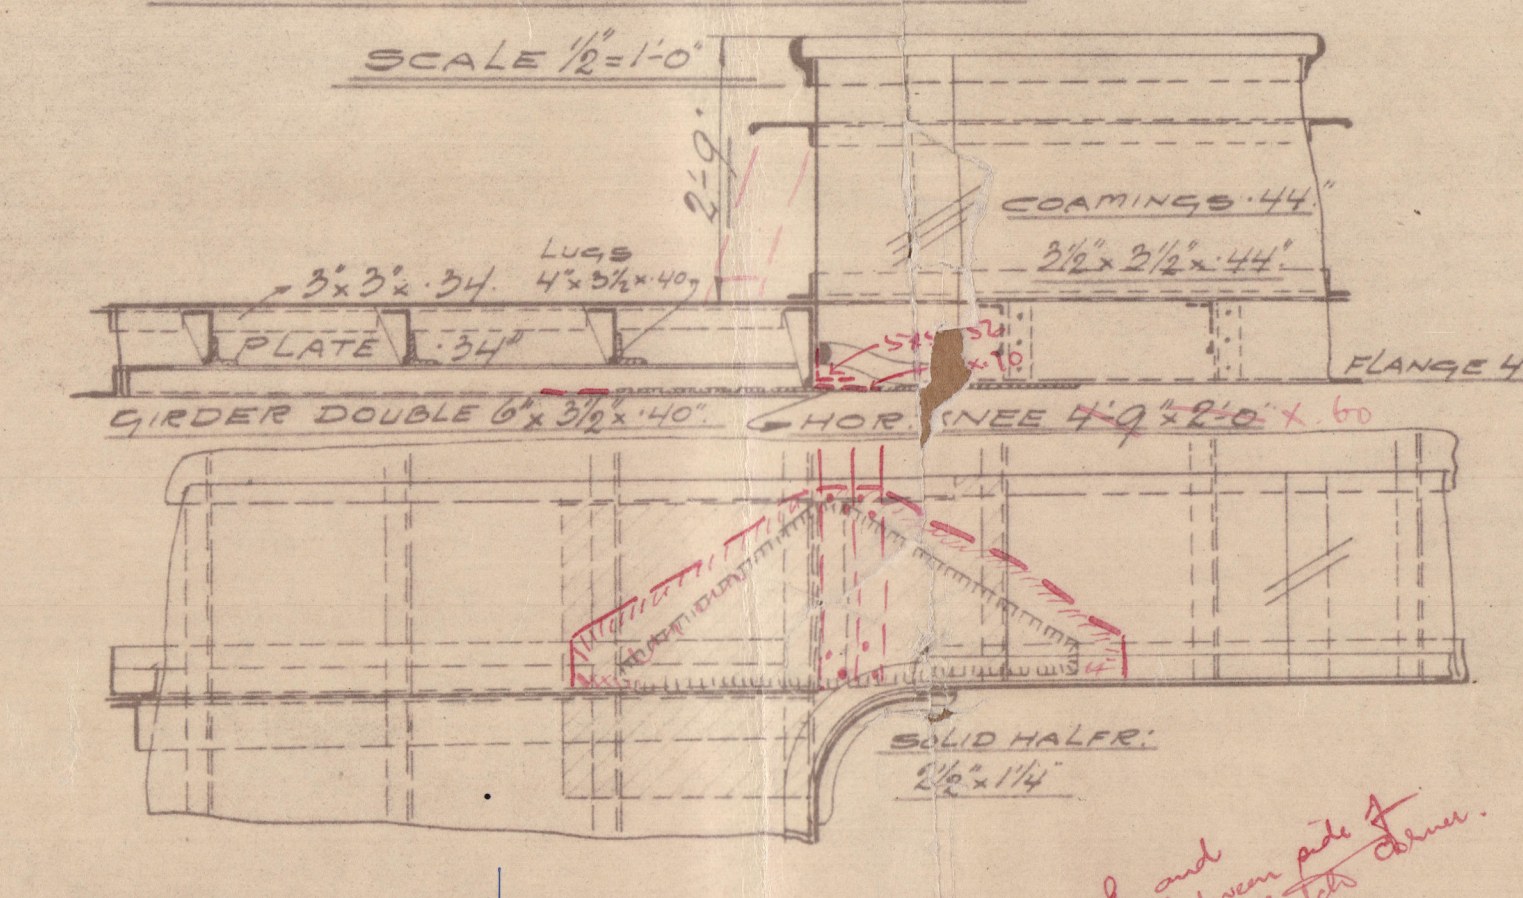 SCALE ½"=1'-0"
2'-9"
COAMINGS .44"
3½" x 3½" x .44"
LUGS
4" x 3½ x .40
3" x 3" x .34.
PLATE .34"
x .70
FLANGE 4
GIRDER DOUBLE 6" x 3½" x .40".
HOR. KNEE 4'-9" x 2'-0" x .60
SOLID HALFR:
2½" x 1¼"
and
side of
corner.